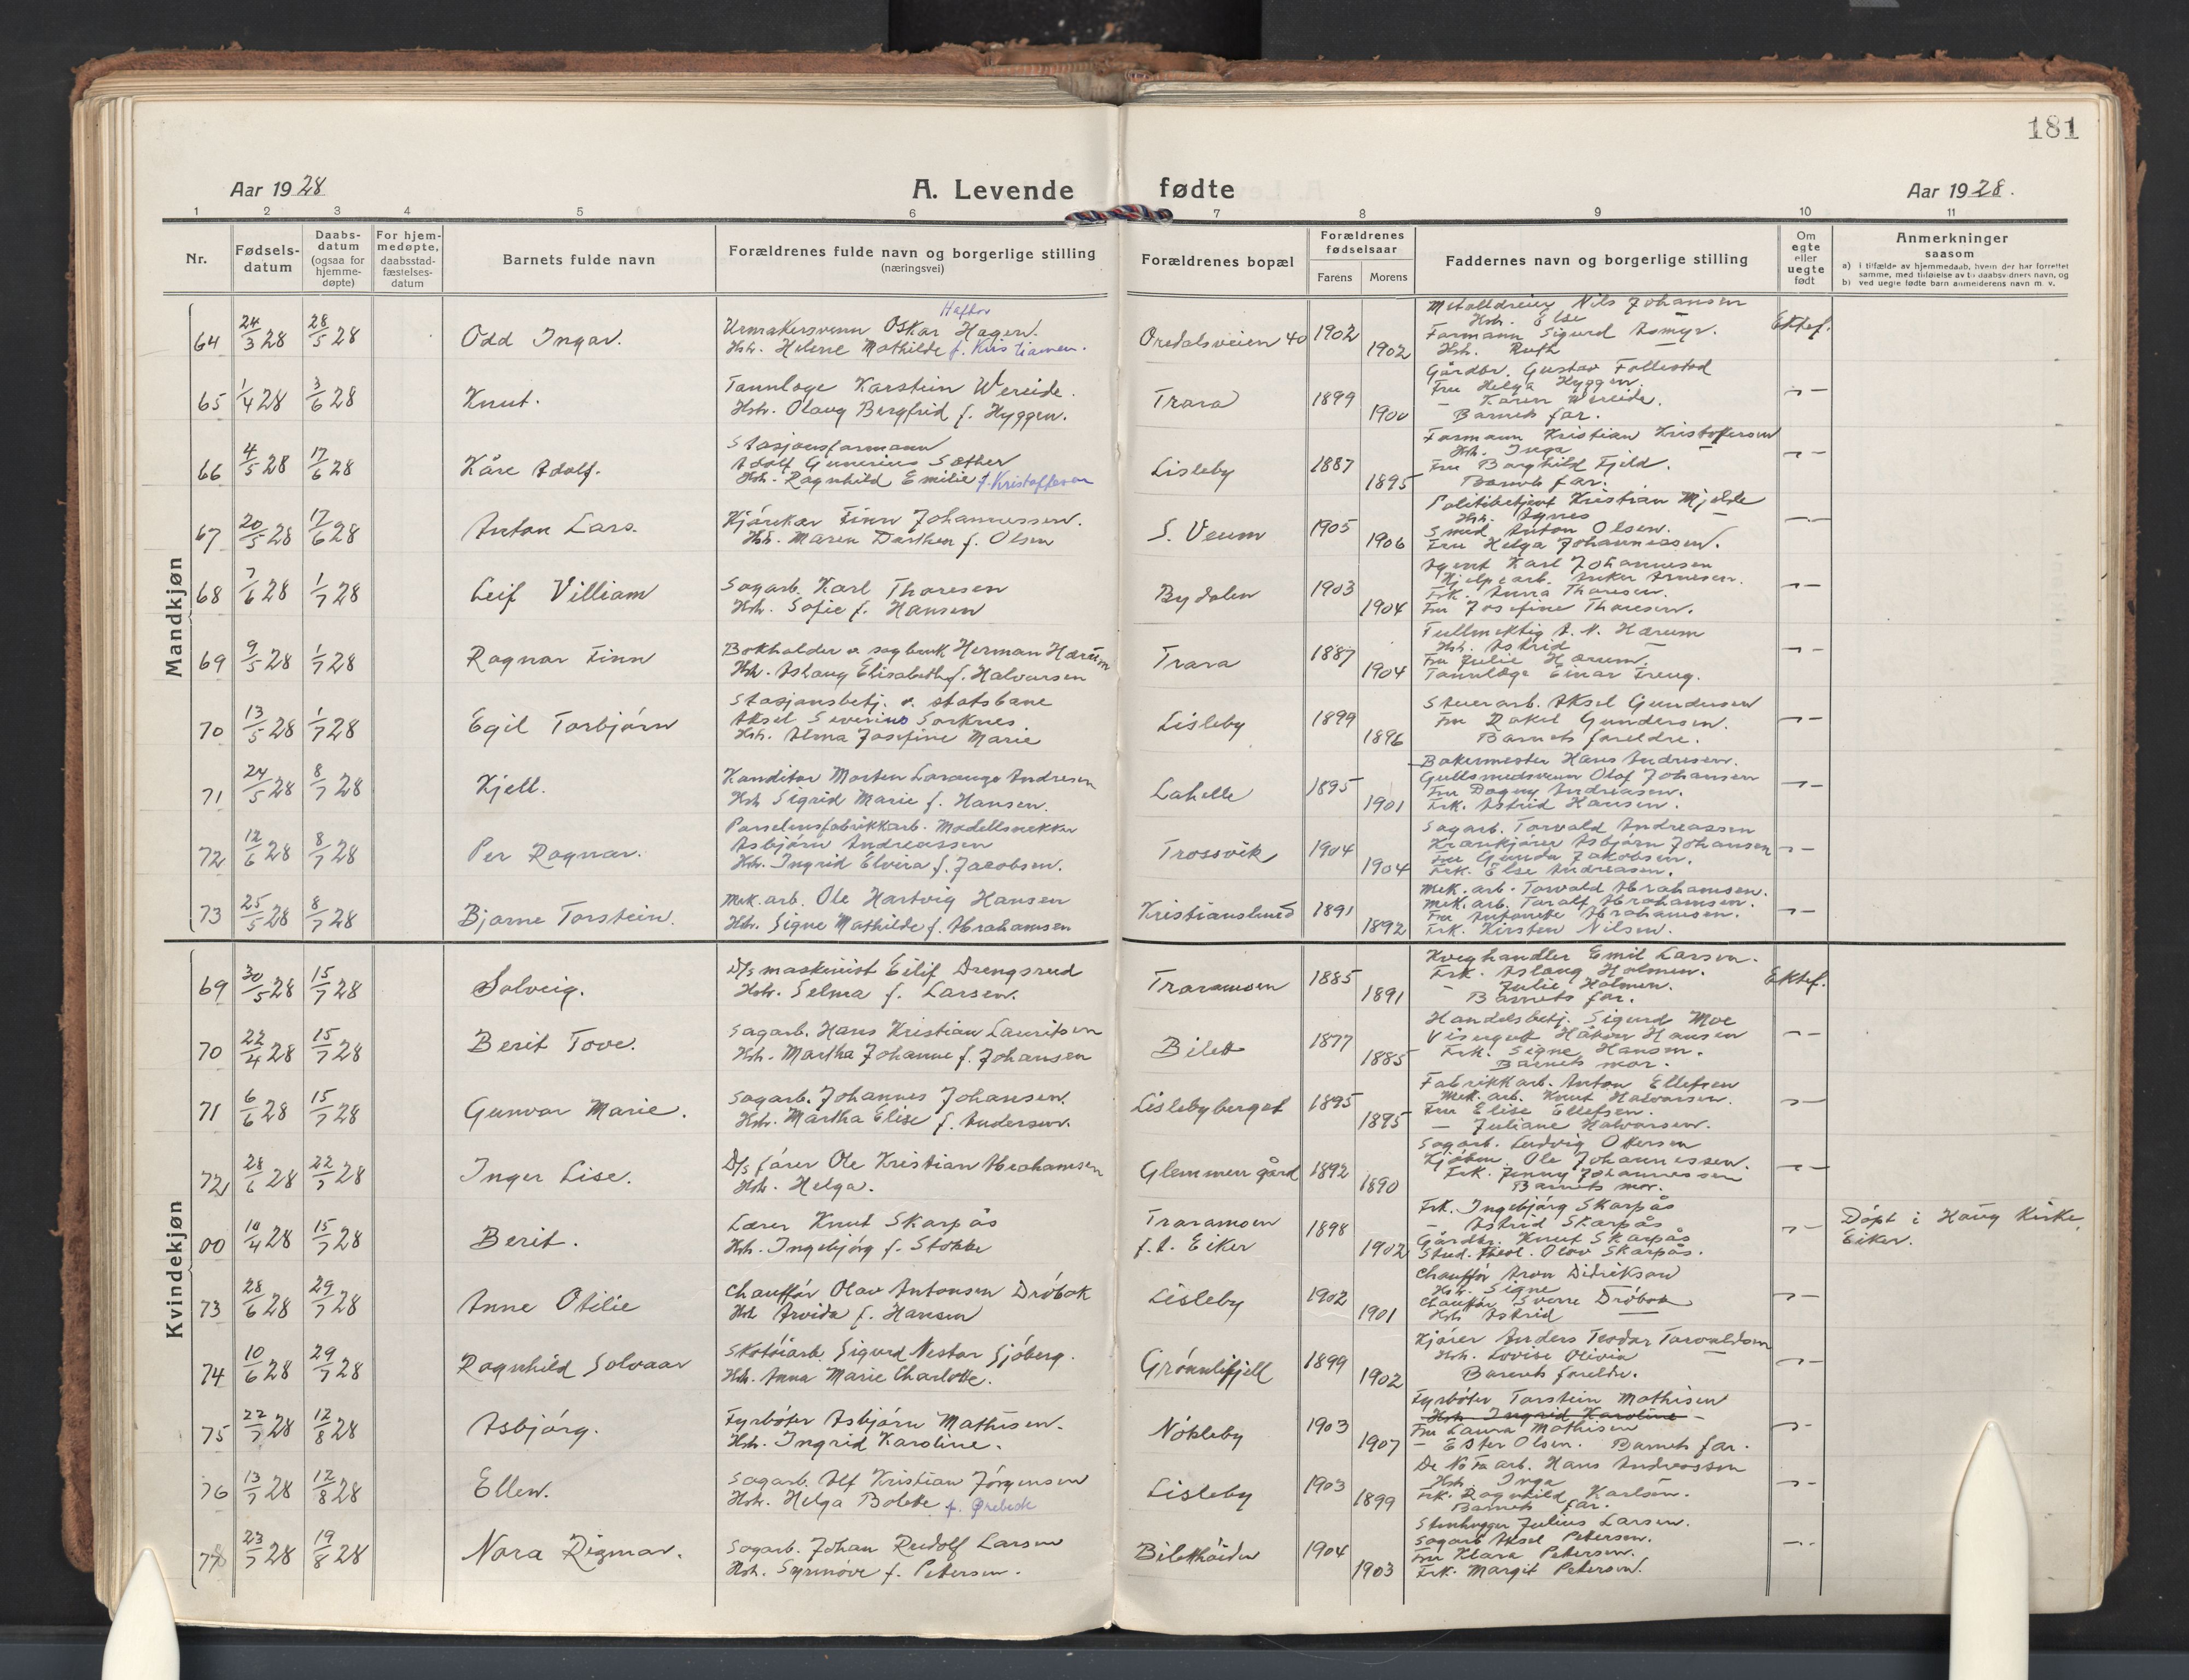 181
Aar 1928
A. Levende fødte
Aar 1928.
1 2 3 4 5 6 7 8 9 10 11
Nr.
Fødsels-
datum
Daabs-
datum
(ogsaa for
hjemme-
døpte)
For hjem-
medøpte,
daabsstad-
fæstelses-
datum
Barnets fulde navn
Forældrenes fulde navn og borgerlige stilling
(næringsvei)
Forældrenes bopæl
Forældrenes
fødselsaar
Farens Morens
Faddernes navn og borgerlige stilling
Om
egte
eller
uegte
født
Anmerkninger
saasom
a) i tilfælde av hjemmedaab, hvem der har forrettet
samme, med tilføielse av to daabsvidners navn, og
b) ved uegte fødte barn anmelderens navn m. v.
Mandkjøn
64 24/3 28 28/5 28
Odd Ingar.
Haftor
Urmakersvenn Oskar Hagen.
Hstr. Helene Mathilde f. Kristiansen.
Oredalsveien 40
1902
1902
Metalldreier Nils Johansen
Hstr. Else
Formann Sigurd Asmyr.
Hstr. Ruth
Ektef.
65 1/4 28 3/6 28
Knut.
Tannlæge Karstein Wereide.
Hstr. Olaug Bergfrid f. Hyggen.
Trara
1899
1900
Gårdbr. Gustav Follestad
Fru Helga Hyggen.
— Karen Wereide.
Barnets far.
66 4/5 28 17/6 28
Kåre Adolf.
Stasjonsformann
Adolf Gunerius Sæther
Hstr. Ragnhild Emilie f. Kristoffersen
Lisleby
1887
1895
Formann Kristian Kristoffersen
Hstr. Inga
Fru Borghild Fjeld.
Barnets far.
67 20/5 28 17/6 28
Anton Lars.
Kjørekar Finn Johannessen.
Hstr. Maren Dorthea f. Olsen
S. Veum
1905
1906
Politibetjent Kristian Mjelde
Hstr. Agnes
Smed Anton Olsen.
Fru Helga Johannessen.
68 7/6 28 1/7 28
Leif Villiam
Sagarb. Karl Thoresen
Hstr. Sofie f. Hansen
Bydalen
1903
1904
Agent Karl Johannesen
Hjelpearb. Anker Arnesen.
Frk. Anna Thoresen.
Fru Josefine Thoresen.
69 9/5 28 1/7 28
Ragnar Finn
Bokholder v. sagbruk Herman Hærum
Hstr. Aslaug Elisabeth f. Halvorsen
Trara
1887
1904
Fullmektig A. N. Hærum
Hstr. Astrid
Fru Julie Hærum.
Tannlæge Einar Freug.
70 13/5 28 1/7 28
Egil Torbjørn
Stasjonsbetj. v. statsbane
Aksel Severinus Sorknes
Hstr. Alma Josefine Marie
Lisleby
1899
1896
Stuerarb. Aksel Gundersen
Fru Rakel Gundersen.
Barnets foreldre.
71 24/5 28 8/7 28
Kjell.
Konditor Morten Laraugo Andresen
Hstr Sigrid Marie f. Hansen.
Lahelle
1895
1901
Bakermester Hans Andresen.
Gullsmedsvenn Olaf Johansen
Fru Dagny Andreasen.
Frk. Astrid Hansen.
72 12/6 28 8/7 28
Per Ragnar.
Porselensfabrikkarb. Modellsnekker
Asbjørn Andreassen
Hstr. Ingrid Elvira f. Jacobsen.
Trossvik
1904
1904
Sagarb. Torvald Andreassen
Krankjører Asbjørn Johansen
Fru Gunda Jakobsen.
Frk. Else Andreasen.
73 25/5 28 8/7 28
Bjarne Torstein.
Mek. arb. Ole Hartvig Hansen
Hstr. Signe Mathilde f. Abrahamsen
Kristianslund
1891
1892
Mek. arb. Torvald Abrahamsen.
Mek. arb. Toralf Abrahamsen.
Fru Antonette Abrahamsen.
Frk. Kirsten Nilsen.
Kvindekjøn
69 30/5 28 15/7 28
Solveig.
D/s maskinist Eilif Drengsrud
Hstr. Selma f. Larsen.
Traramoen
1885
1891
Kveghandler Emil Larsen.
Frk. Aslaug Holmen.
— Julie Holmen.
Barnets far.
Ektef.
70 22/4 28 15/7 28
Berit Tove.
Sagarb. Hans Kristian Lauritsen
Hstr. Martha Johanne f. Johansen
Bilet
1877
1885
Handelsbetj. Sigurd Moe
Visergutt Håkon Hansen
Frk. Signe Hansen.
Barnets mor.
71 6/6 28 15/7 28
Gunvor Marie.
Sagarb. Johannes Johansen.
Hstr. Martha Elise f. Andersen.
Lislebyberget
1895
1895
Fabrikkarb. Anton Ellefsen
Mek. arb. Knut Halvorsen.
Fru Elise Ellefsen.
— Juliane Halvorsen.
72 28/6 28 22/7 28
Inger Lise.
D/s fører Ole Kristian Abrahamsen
Hstr. Helga.
Glemmen gård
1892
1890
Sagarb. Ludvig Ottersen
Kjøbm. Ole Johannessen.
Frk. Jenny Johannessen
Barnets mor.
00 10/4 28 15/7 28
Berit.
Lærer Knut Skarpås
Hstr. Ingebjørg f. Stokke
Traramoen
f. t. Eiker
1898
1902
Frk. Ingebjørg Skarpås
— Astrid Skarpås
Gårdbr. Knut Skarpås
Stud. theol. Olav Skarpås.
Døpt i Haug Kirke,
Eiker.
73 28/6 28 29/7 28
Anne Otilie
Chauffør Olav Antonsen Drøbak
Hstr Arvida f. Hansen
Lisleby
1902
1901
Chauffør Aron Didriksen
Hstr. Signe
Chauffør Sverre Drøbak
Hstr Astrid
74 10/6 28 29/7 28
Ragnhild Solvaar
Skotøiarb. Sigurd Nestor Sjøberg.
Hstr. Anna Marie Charlotte.
Grønnlifjell
1899
1902
Kjører Anders Teodor Torvaldsen
Hstr. Lovise Olivia
Barnets foreldre.
75 22/7 28 12/8 28
Asbjørg.
Fyrbøter Asbjørn Mathisen.
Hstr. Ingrid Karoline.
Nøkleby
1903
1907
Fyrbøter Torstein Mathisen
Hstr Ingrid Karoline
Fru Laura Mathisen
— Ester Olsen. Barnets far.
76 13/7 28 12/8 28
Ellen.
Sagarb. Alf Kristian Jørgensen
Hstr. Helga Bolette f. Ørebek
Lisleby
1903
1899
De No Fa arb. Hans Andreassen
Hstr. Inga
Frk. Ragnhild Karlsen.
Barnets far.
77 23/7 28 19/8 28
Nora Rigmor.
Sagarb. Johan Rudolf Larsen
Hstr. Synnøve f. Petersen.
Biletthøiden
1904
1903
Stenhugger Julius Larsen.
Sagarb Aksel Petersen.
Fru Klara Petersen.
Frk. Margit Petersen.